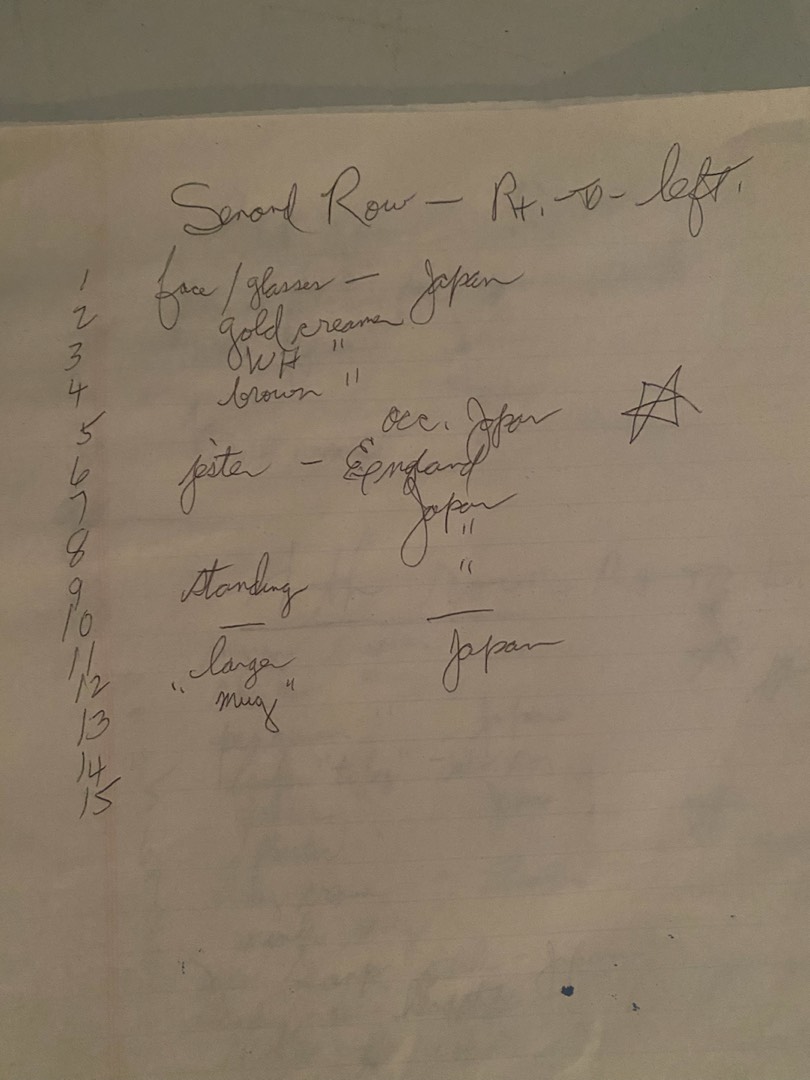 Second Row — Rt. -to- left.
1 face / glasses — Japan
2 gold creamer
3 WH "
4 brown "
5 occ. Japan
6 jester — England
7 Japan
8 "
9 standing "
10 — —
11 larger Japan
12 "mug"
13
14
15